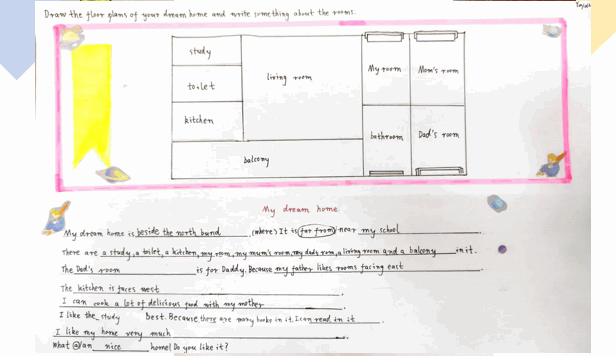 Draw the floor plans of your dream home and write something about the rooms.
study
toilet
kitchen
living room
balcony
My room
Mom's room
bathroom
Dad's room
My dream home
My dream home is beside the north bund. (where) It is far from/near my school.
There are a study, a toilet, a kitchen, my room, my mum's room, my dad's room, a living room and a balcony in it.
The Dad's room is for Daddy. Because my father likes rooms facing east.
The kitchen is faces west.
I can cook a lot of delicious food with my mother.
I like the study best. Because there are many books in it. I can read in it.
I like my home very much.
What a/an nice home! Do you like it?